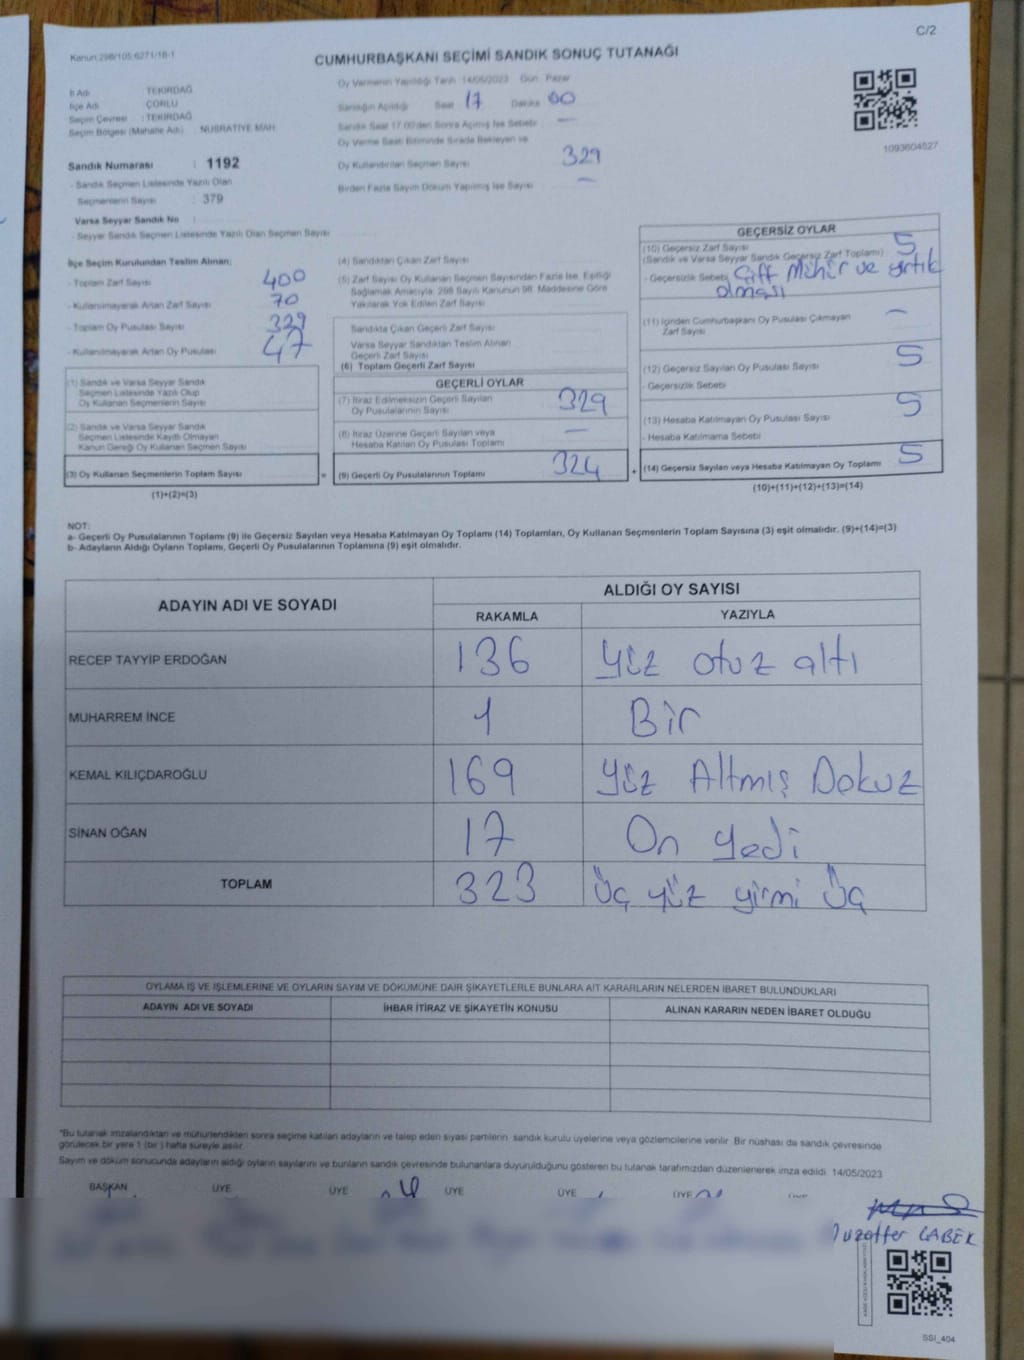 C/2
Kanun:298/105:6271/18-1
CUMHURBAŞKANI SEÇİMİ SANDIK SONUÇ TUTANAĞI
İl Adı : TEKİRDAĞ
İlçe Adı : ÇORLU
Seçim Çevresi : TEKİRDAĞ
Seçim Bölgesi (Mahalle Adı) : NUSRATİYE MAH.
Sandık Numarası : 1192
- Sandık Seçmen Listesinde Yazılı Olan
Seçmenlerin Sayısı : 379
Varsa Seyyar Sandık No :
- Seyyar Sandık Seçmen Listesinde Yazılı Olan Seçmen Sayısı
Oy Vermenin Yapıldığı Tarih 14/05/2023 Gün Pazar
Sandığın Açıldığı Saat 17 Dakika 00
Sandık Saat 17.00'den Sonra Açılmış İse Sebebi —
Oy Verme Saati Bitiminde Sırada Bekleyen ve
Oy Kullandırılan Seçmen Sayısı 329
Birden Fazla Sayım Döküm Yapılmış İse Sayısı —
1093604527
İlçe Seçim Kurulundan Teslim Alınan;
- Toplam Zarf Sayısı 400
- Kullanılmayarak Artan Zarf Sayısı 70
- Toplam Oy Pusulası Sayısı 329
- Kullanılmayarak Artan Oy Pusulası 47
(1) Sandık ve Varsa Seyyar Sandık
Seçmen Listesinde Yazılı Olup
Oy Kullanan Seçmenlerin Sayısı
(2) Sandık ve Varsa Seyyar Sandık
Seçmen Listesinde Kayıtlı Olmayan
Kanun Gereği Oy Kullanan Seçmen Sayısı
(3) Oy Kullanan Seçmenlerin Toplam Sayısı =
(1)+(2)=(3)
(4) Sandıktan Çıkan Zarf Sayısı
(5) Zarf Sayısı Oy Kullanan Seçmen Sayısından Fazla İse, Eşitliği
Sağlamak Amacıyla; 298 Sayılı Kanunun 98. Maddesine Göre
Yakılarak Yok Edilen Zarf Sayısı
Sandıkta Çıkan Geçerli Zarf Sayısı
Varsa Seyyar Sandıktan Teslim Alınan
Geçerli Zarf Sayısı
(6) Toplam Geçerli Zarf Sayısı
GEÇERLİ OYLAR
(7) İtiraz Edilmeksizin Geçerli Sayılan
Oy Pusulalarının Sayısı 329
(8) İtiraz Üzerine Geçerli Sayılan veya
Hesaba Katılan Oy Pusulası Toplamı —
(9) Geçerli Oy Pusulalarının Toplamı 324 +
GEÇERSİZ OYLAR
(10) Geçersiz Zarf Sayısı 5
(Sandık ve Varsa Seyyar Sandık Geçersiz Zarf Toplamı)
- Geçersizlik Sebebi Çift Mühür ve yırtık
olması
(11) İçinden Cumhurbaşkanı Oy Pusulası Çıkmayan
Zarf Sayısı —
(12) Geçersiz Sayılan Oy Pusulası Sayısı 5
- Geçersizlik Sebebi
(13) Hesaba Katılmayan Oy Pusulası Sayısı 5
- Hesaba Katılmama Sebebi
(14) Geçersiz Sayılan veya Hesaba Katılmayan Oy Toplamı 5
(10)+(11)+(12)+(13)=(14)
NOT:
a- Geçerli Oy Pusulalarının Toplamı (9) ile Geçersiz Sayılan veya Hesaba Katılmayan Oy Toplamı (14) Toplamları, Oy Kullanan Seçmenlerin Toplam Sayısına (3) eşit olmalıdır. (9)+(14)=(3)
b- Adayların Aldığı Oyların Toplamı, Geçerli Oy Pusulalarının Toplamına (9) eşit olmalıdır.
ADAYIN ADI VE SOYADI
ALDIĞI OY SAYISI
RAKAMLA YAZIYLA
RECEP TAYYİP ERDOĞAN 136 yüz otuz altı
MUHARREM İNCE 1 Bir
KEMAL KILIÇDAROĞLU 169 yüz Altmış Dokuz
SİNAN OĞAN 17 On yedi
TOPLAM 323 üç yüz yirmi üç
OYLAMA İŞ VE İŞLEMLERİNE VE OYLARIN SAYIM VE DÖKÜMÜNE DAİR ŞİKAYETLERLE BUNLARA AİT KARARLARIN NELERDEN İBARET BULUNDUKLARI
ADAYIN ADI VE SOYADI İHBAR İTİRAZ VE ŞİKAYETİN KONUSU ALINAN KARARIN NEDEN İBARET OLDUĞU
*Bu tutanak imzalandıktan ve mühürlendikten sonra seçime katılan adayların ve talep eden siyasi partilerin sandık kurulu üyelerine veya gözlemcilerine verilir. Bir nüshası da sandık çevresinde
görülecek bir yere 1 (bir) hafta süreyle asılır.
Sayım ve döküm sonucunda adayların aldığı oyların sayılarını ve bunların sandık çevresinde bulunanlara duyurulduğunu gösteren bu tutanak tarafımızdan düzenlenerek imza edildi. 14/05/2023
BAŞKAN ÜYE ÜYE ÜYE ÜYE ÜYE
SSI_404